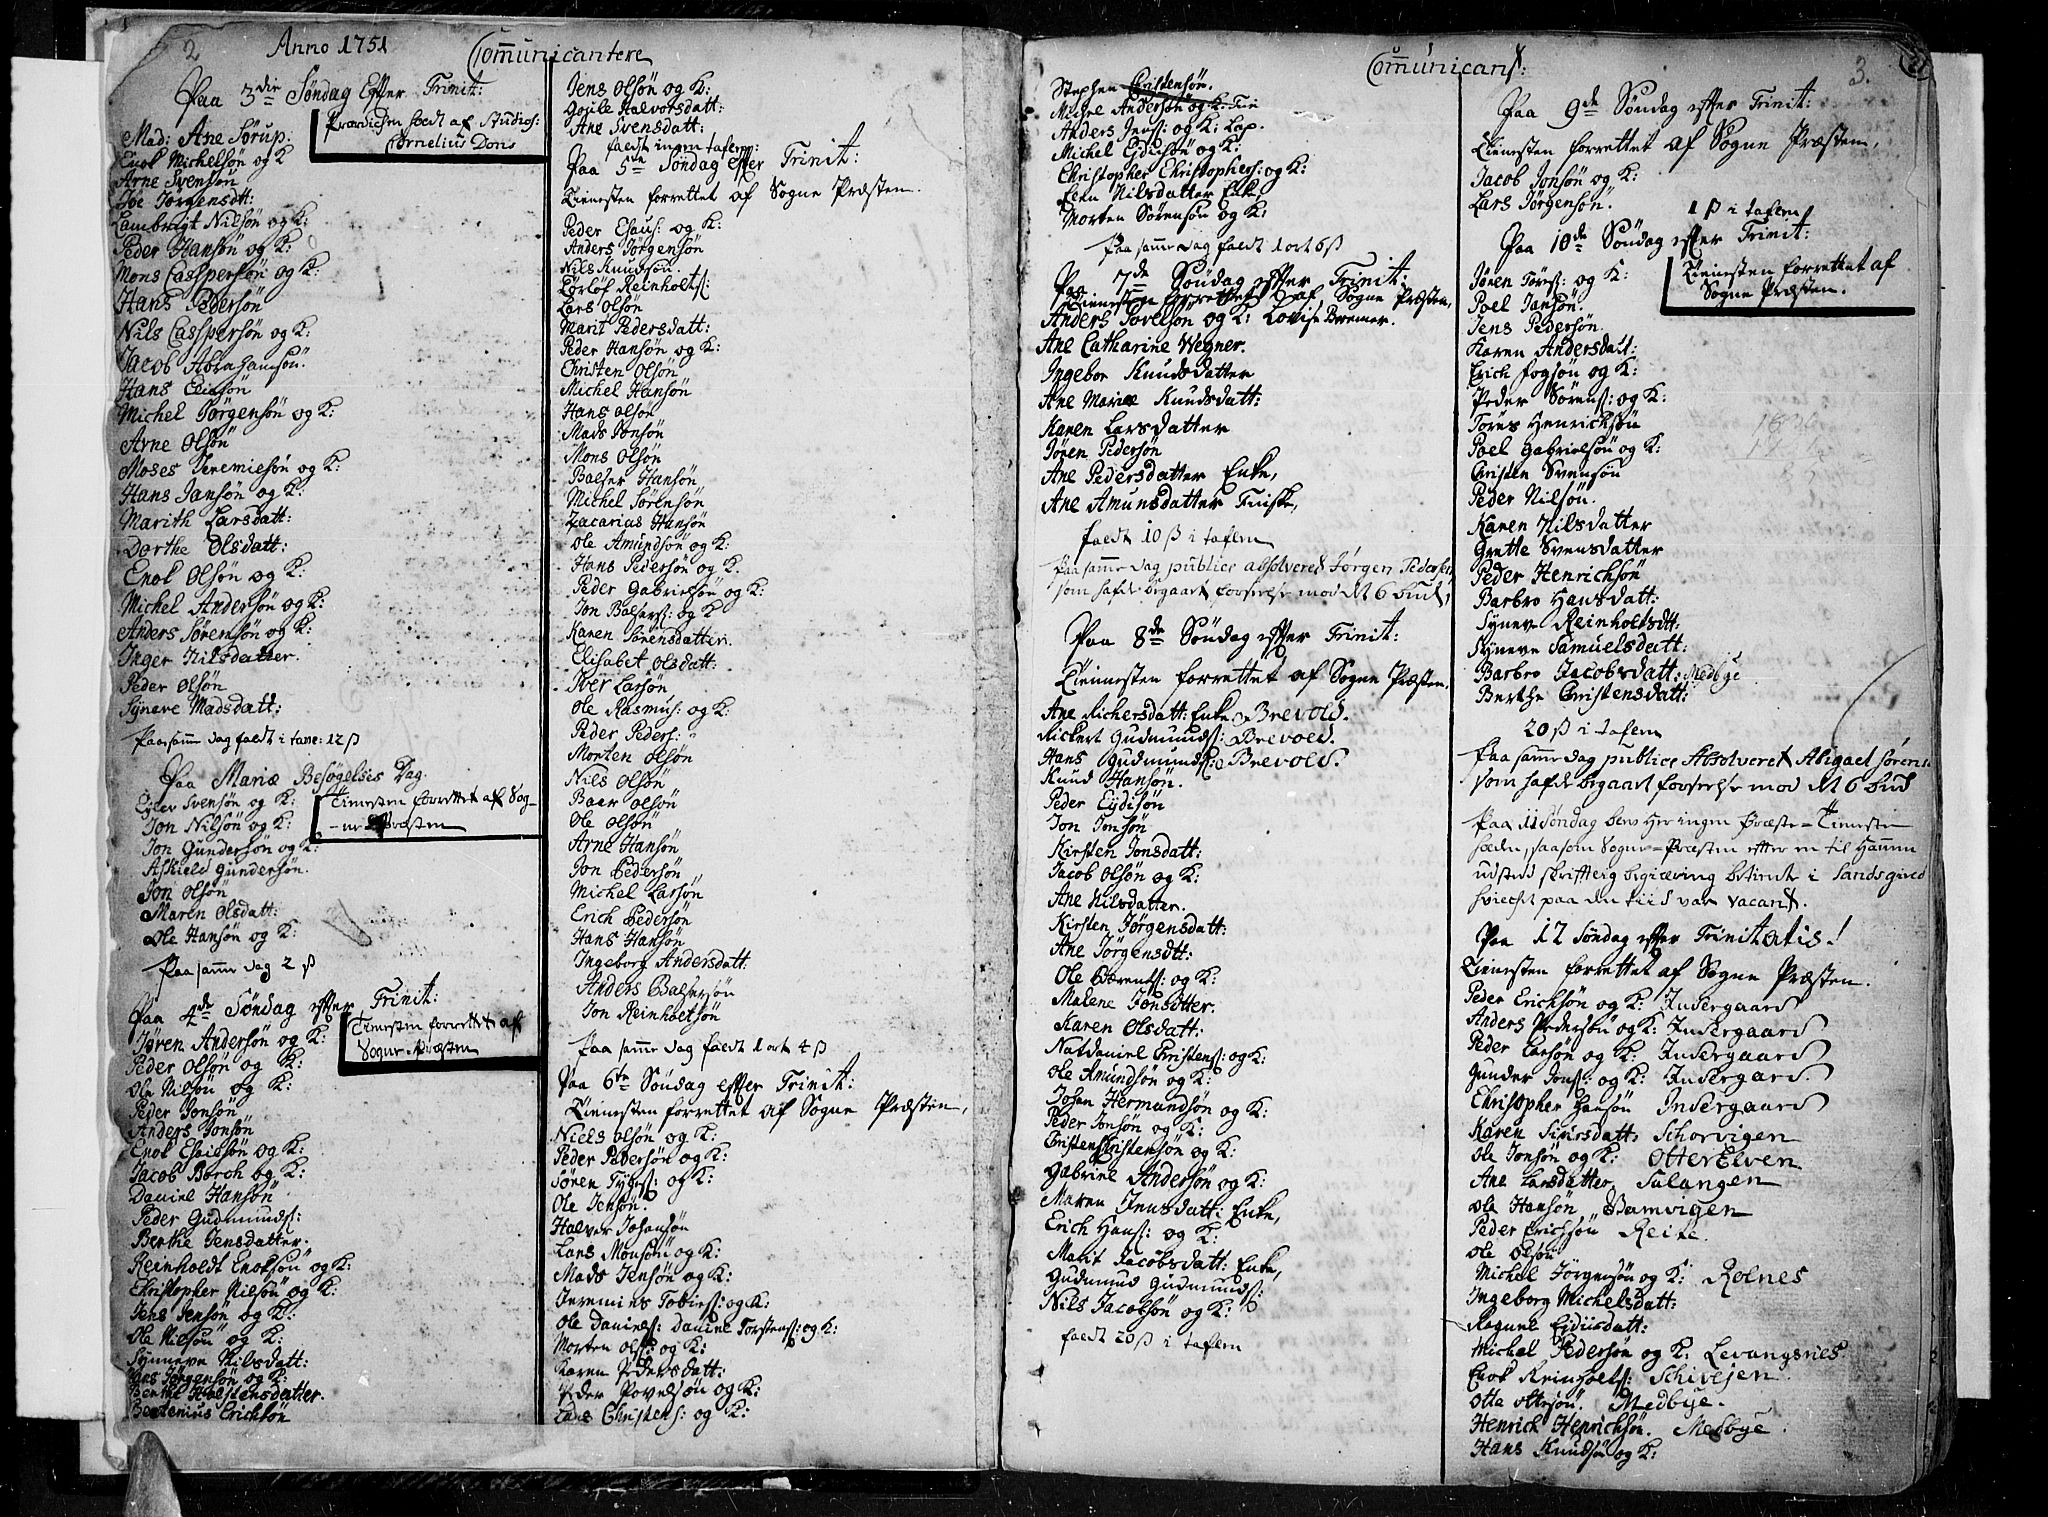 2
Anno 1751
Comunicantere
Paa 3die Søndag Effter Trinit:
Prædichen holdt af Studios:
Cornelius Dons
Mad: Ane Sørup.
Enok Michelsøn og K
Arne Svensøn
Joe Jørgensdt:
Lambrigt Nilsøn og K:
Peder Hansøn og K:
Mons Casspersøn og K:
Hans Pedersøn
Nils Casspersøn og K:
Jacob Abrahamsøn
Hans
Michel Jørgensøn og K:
Arne Olsøn
Moses Jeremiesøn og K:
Hans Jansøn og K:
Marith Larsdatt:
Dorthe Olsdatt:
Enok Olsøn og K:
Michel Andersøn og K:
Anders Sørensøn og K:
Inger Nilsdatter.
Peder Olsøn
Syneve Madsdatt:
Paa samme dag faldt i tavle: 12 ß
Paa Mariæ Besøgelses Dag.
Tienesten forrettet af Sog-
-ne Præsten
Ejlev Svensøn og K:
Jon Nilsøn og K:
Jon Gundersøn og K:
Askield Gundersøn.
Jon Olsøn
Maren Olsdatt:
Ole Hansøn og K:
Paa samme dag 2 ß
Paa 4de Søndag effter Trinit:
Tienesten forrettet af
Sogne Præsten
Jøren Andersøn og K:
Peder Olsøn og K:
Ole Nilsøn og K:
Peder Jonsøn
Anders Jonsøn
Enok Esaiesøn og K:
Jacob Borch og K:
Daniel Hansøn
Peder Gudmunds:
Berthe Jensdatter.
Reinholdt Enoksøn og K:
Christopher Nilsøn og K:
Jens Jensøn og K:
Ole Nilsøn og K:
Synneve Nilsdatt:
Hans Jørgensøn og K:
Berthe Holstensdatter.
Erichsøn
Jens Olsøn og K:
Gojile Halvorsdatt:
Ane Svensdatt:
faldt ingen taflem:
Paa 5te Søndag effter Trinit:
Tienesten forrettet af Sogne Præsten.
Peder Esaus: og K:
Anders Jørgensøn
Nils Knudsøn.
Reinholts:
Lars Olsøn
Marit Pedersdatt:
Peder Hansøn og K:
Christen Olsøn
Michel Hansøn
Hans Olsøn
Mads Jonsøn
Mons Olsøn
Balser Hansøn
Michel Sørensøn
Zacarias Hansøn
Ole Amundsøn og K:
Hans Pedersøn og K.
Peder Gabrielsøn og K:
Jon Balsers: og K
Karen Sørensdatter.
Elisabet Olsdatt:
Iver Larsøn
Ole Rasmus: og K:
Peder Peders:
Morten Olsøn
Nils Olsøn
Baar Olsøn
Ole Olsøn
Arne Hansøn
Jon Pedersøn
Michel Larsøn
Erich Pedersøn
Hans Hansøn
Ingeborg Andersdatt:
Anders Balsersøn
Jon Reinholtsøn
Paa samme dag faldt 1 ort 4 ß
Paa 6te Søndag effter Trinit:
Tienesten forrettet af Sogne Præsten,
Niels Olsøn og K:
Peder Pedersøn og K:
Søren Tyges: og K:
Ole Jensøn.
Halver Johansøn
Lars Monsøn og K:
Mads Jensøn og K:
Jeremies Tobies: og K:
Ole Daniels: Daniel Torstens: og K:
Morten Ols: og K:
Karen Pedersdatt:
Peder Povelsøn og K:
Lars Christens: og K:
Comunicant:
3.
Stephen Christensøn.
Michel Andersøn og K: Fin
Anders Jens: og K: Lap.
Michel Ejdiisøn og K:
Christopher Christophers: og K:
Elen Nilsdatter Enke,
Morten Sørensøn og K:
Paa samme dag faldt 1 ort 6 ß
Paa 7de Søndag effter Trinit:
Tienesten forrettet af Sogne Præsten,
Anders Povelsøn og K: Lovise Bremer.
Ane Catharine Wegner.
Ingebor Knudsdatter
Ane Marie Knudsdatt:
Karen Larsdatter
Jøren Pedersøn
Ane Pedersdatter Enke,
Ane Amunsdatter Finske,
faldt 10 ß i taflem
Paa samme dag publice absolveret Jørgen Pedersen
som hafde begaaet forseelse mod det 6 bud,
Paa 8de Søndag effter Trinit:
Tienesten forrettet af Sogne Præsten.
Ane Richersdatt: Enke, Brevold.
Rickert Gudmunds: Brevold.
Hans Gudmunds: Brevold.
Knud Hansøn.
Peder Eydisøn
Jon Jonsøn
Kirsten Jonsdatt:
Jacob Olsøn og K:
Ane Nilsdatter.
Kirsten Jørgensdatt:
Ane Jørgensdtt:
Ole Bærents: og K:
Malene Jonsdtter.
Karen Olsdatt:
Natdaniel Christens: og K:
Ole Amundsøn og K:
Johan Hermundsøn og K:
Peder Jonsøn og K:
Christen Christensøn og K:
Gabriel Andersøn og K:
Maren Jensdatt: Enke,
Erich Hans: og K:
Marit Jacobsdatt: Enke,
Gudmund Gudmunds:
Nils Jacobsøn og K:
faldt 20 ß i taflem
Paa 9de Søndag effter Trinit:
Tienesten forrettet af Sogne Præsten,
Jacob Jonsøn og K:
Lars Jørgensøn.
1 ß i taflem
Paa 10de Søndag effter Trinit:
Tienesten forrettet af
Sogne Præsten.
Jøren Tores: og K:
Poel Jansøn.
Jens Pedersøn.
Karen Andersdatt:
Erich Fogsøn og K:
Peder Sørens: og K:
Tores Henrichsøn
Poel Gabrielsøn og K:
Christen Svensøn
Peder Nilsøn.
Karen Nilsdatter
Grette Svensdatter
Peder Henrichsøn
Barbro Hansdatt:
Synev Reinholtsdtt:
Syneve Samuelsdatt:
Barbro Jacobsdatt: Medbye
Berthe Christensdatt:
20 ß i taflem
Paa samme dag publice Absolveret Abigael Sørens:
som hafde begaaet forseelse mod det 6 bud
Paa 11 Søndag blev her ingen Præste-Tienesten
holden, saasom Sogne-Præsten effter en til hannem
udsted skrifftlig begiæring betiente i Sandsgierd
hvilcket paa den tiid var vacant.
Paa 12 Søndag effter Trinitatis!
Tienesten forrettet af Sogne Præsten.
Peder Erichsøn og K: Indergaard
Anders Pedersøn og K: Indergaard
Peder Larsøn og K: Indergaard
Gunder Jons: og K: Indergaard.
Christopher Hansøn Indergaard
Karen Siursdatt: Schorvigen
Ole Jonsøn og K: Otterelven
Ane Larsdatter Salangen
Ole Hansøn Vamvigen
Peder Erichsøn Reite.
Ole Olsøn
Michel Jørgensøn og K: Rolnes
Ingeborg Michelsdatt:
Ragnel Ejdiisdatt:
Michel Pedersøn og K: Levangsnes.
Enok Reinholts: Schivejen
Otte Ottesøn. Medbye.
Henrich Henrichsøn. Medbye.
Hans Knudsøn og K: